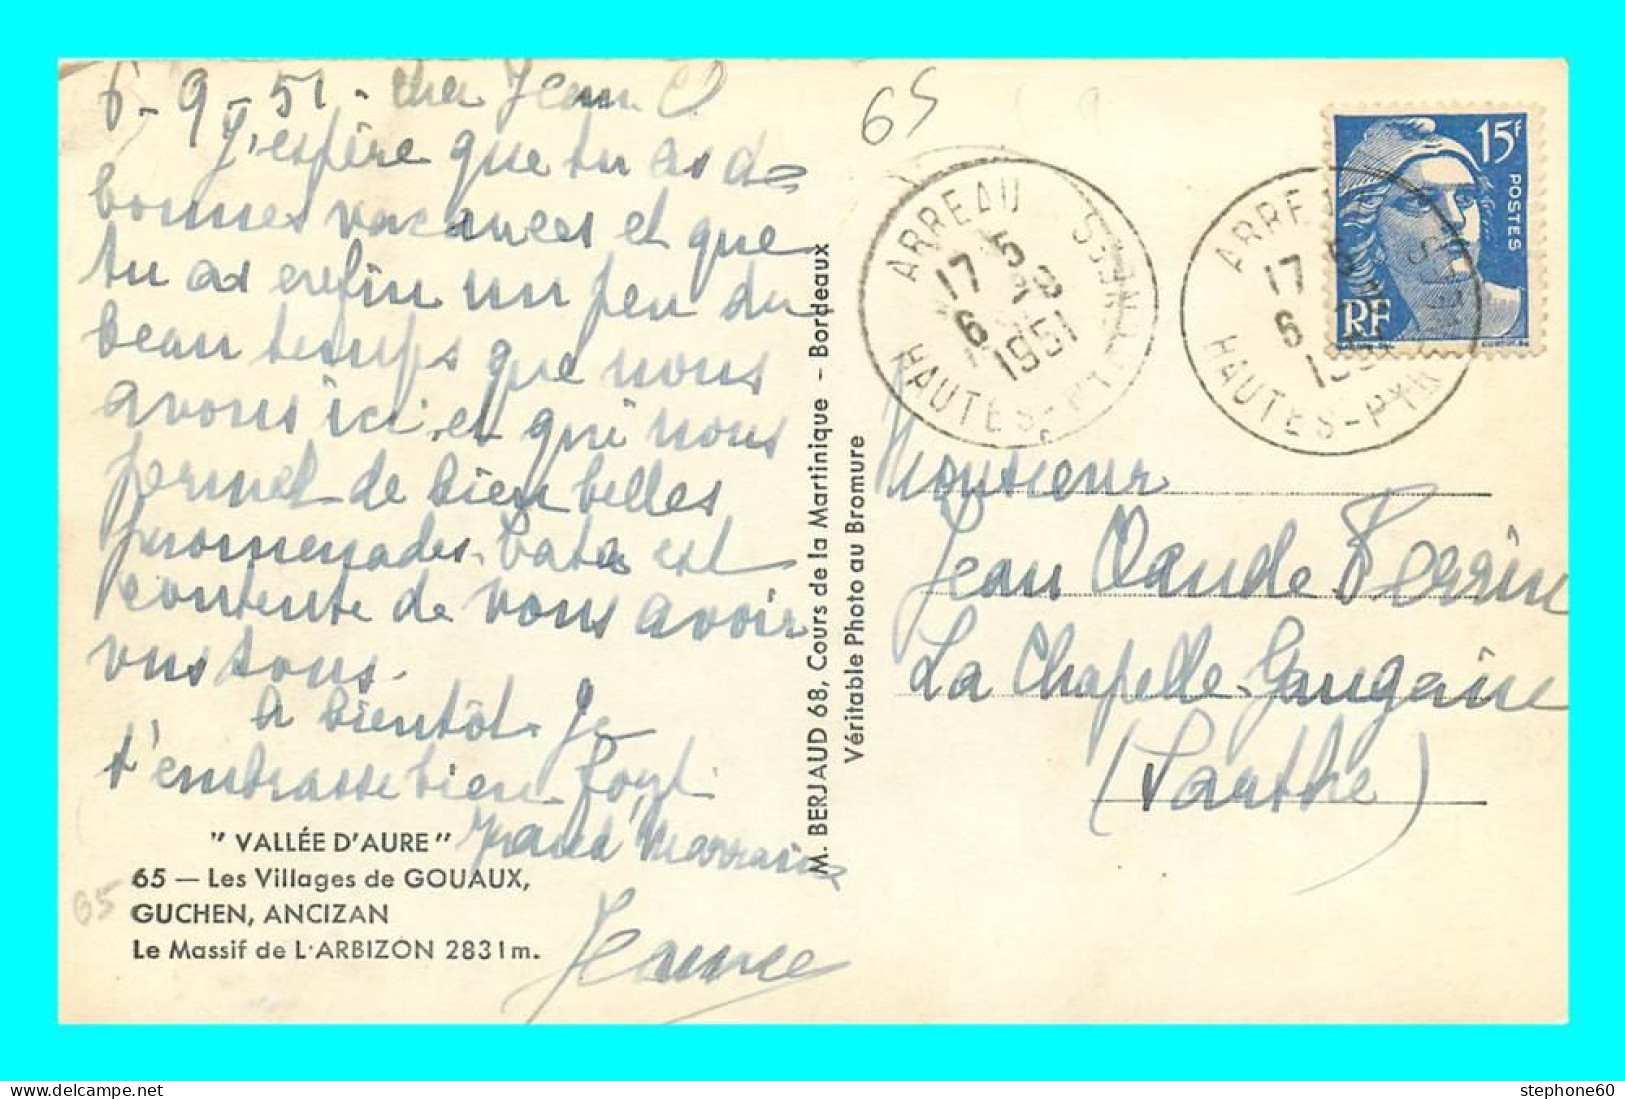 6-9-51. cher Jean C
J'espère que tu as de
bonnes vacances et que
tu as enfin un peu du
beau temps que nous
avons ici, et qui nous
permet de bien belles
promenades. est
contente de vous avoir
vus tous.
A bientôt. Je
t'embrasse bien fort.
grand' Marraine
Jeanne
" VALLÉE D'AURE "
65 — Les Villages de GOUAUX,
GUCHEN, ANCIZAN
Le Massif de L'ARBIZON 2831 m.
65
M. BERJAUD 68, Cours de la Martinique - Bordeaux
Véritable Photo au Bromure
65
ARREAU
17 5
6
1951
HAUTES-PYRENEES
15F
POSTES
RF
ARREAU
17
6
1951
HAUTES-PYRENEES
Monsieur
Jean Claude Perrin
La Chapelle-Gaugaine
(Sarthe)
stephone60